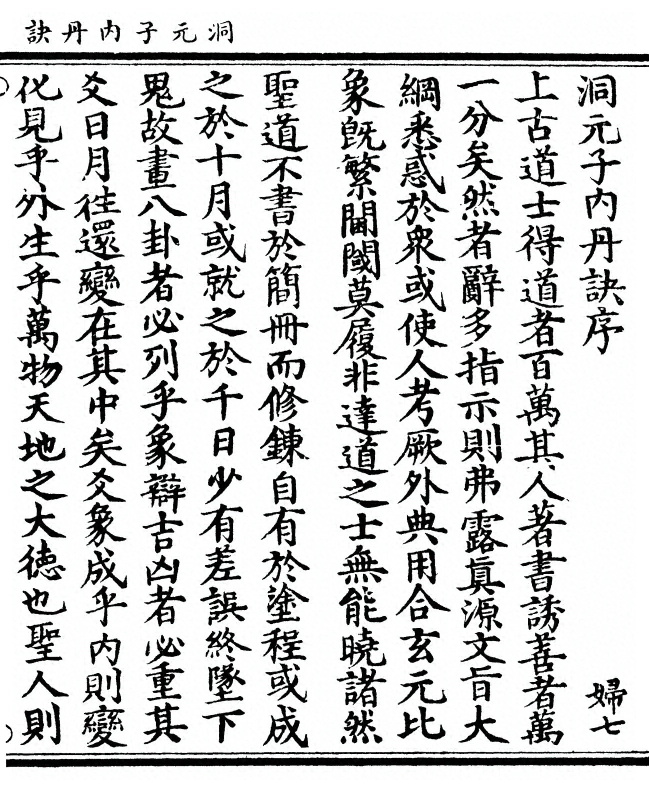 洞元子內丹訣
洞元子內丹訣序
婦七
上古道士得道者百萬其人著書誘善者萬
一分矣然者辭多指示則弗露眞源文旨大
綱悉惑於衆或使人考厥外典用合玄元比
象旣繁閫閾莫履非達道之士無能曉諸然
聖道不書於簡冊而修鍊自有於塗程或成
之於十月或就之於千日少有差誤終墜下
鬼故畫八卦者必列乎象辯吉凶者必重其
爻日月徃還變在其中矣爻象成乎內則變
化見乎外生乎萬物天地之大德也聖人則